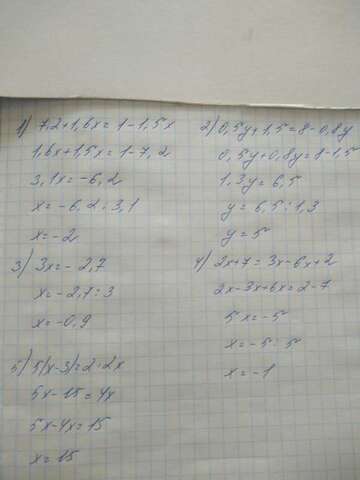 1) 7,2+1,6x=1-1,5x
1,6x+1,5x=1-7,2
3,1x=-6,2
x=-6,2:3,1
x=-2
2) 0,5y+1,5=8-0,8y
0,5y+0,8y=8-1,5
1,3y=6,5
y=6,5:1,3
y=5
3) 3x=-2,7
x=-2,7:3
x=-0,9
4) 2x+7=3x-6x+2
2x-3x+6x=2-7
5x=-5
x=-5:5
x=-1
5) 5(x-3)=2·2x
5x-15=4x
5x-4x=15
x=15